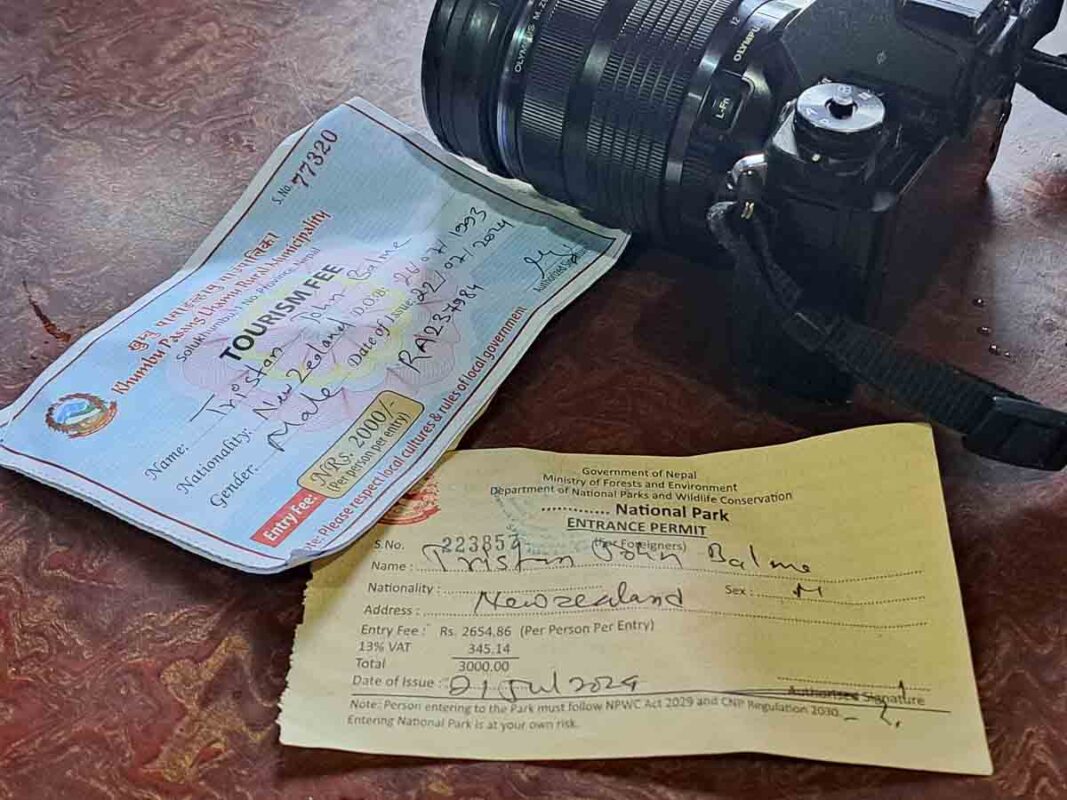 OLYMPUS M.
OLYMPU
L-Fn
S.No. 77320
खुम्बु पासाङल्हामु गाउँपालिका
Khumbu Pasang Lhamu Rural Municipality
Solukhumbu, No. Province, Nepal
TOURISM FEE
Name: Tristan John Balme
Nationality: New Zealand D.O.B: 26/07/1993
Gender: Male Date of Issue: 22/07/2024
RA237984
Entry Fee: NRs. 2000/-
(Per person per entry)
Authorized Signature
Please respect local cultures & rules of local government
Government of Nepal
Ministry of Forests and Environment
Department of National Parks and Wildlife Conservation
............ National Park
ENTRANCE PERMIT
(For Foreigners)
S.No. 223857
Name : Tristan John Balme
Nationality : Newzealand Sex : M
Address :
Entry Fee : Rs. 2654.86 (Per Person Per Entry)
13% VAT 345.14
Total 3000.00
Date of Issue : 21 Jul 2024
Authorized Signature
Note: Person entering to the Park must follow NPWC Act 2029 and CNP Regulation 2030.
Entering National Park is at your own risk.